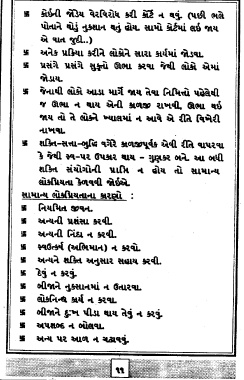 卐 કોઈની જોડેય વેરવિરોધ કરી કોર્ટ ન થવું. (પછી ભલે
પોતાને થોડું નુકશાન થતું હોય. સામો કોર્ટમાં લઈ જાય
એ વાત જુદી..)
卐 અનેક પ્રક્રિયા કરીને લોકોને સારા કાર્યમાં જોડવા.
卐 પ્રસંગે પ્રસંગે સુકૃતો ઊભા કરવા જેથી લોકો એમાં
જોડાય.
卐 જેનાથી લોકો આડા માર્ગે જાય તેવા નિમિત્તો પહેલેથી
જ ઊભા ન થાય એની કાળજી રાખવી, ઊભા થઈ
જાય તો તે લોકને ખ્યાલમાં ન આવે એ રીતે વિખેરી
નાખવા.
卐 શક્તિ-સત્તા-બુદ્ધિ વગેરે કાળજીપૂર્વક એવી રીતે વાપરવા
કે જેથી સ્વ-પર ઉપકાર થાય - ગુણકર બને. આ બધી
શક્તિ સંયોગોની પ્રાપ્તિ ન હોય તો સામાન્ય
લોકપ્રિયતા કેળવવી જોઈએ.
સામાન્ય લોકપ્રિયતાના કારણો :
卐 નિયમિત જીવન.
卐 અન્યની પ્રશંસા કરવી.
卐 અન્યની નિંદા ન કરવી.
卐 સ્વઉત્કર્ષ (અભિમાન) ન કરવો.
卐 અન્યને શક્તિ અનુસાર સહાય કરવી.
卐 દેવું ન કરવું.
卐 બીજાને નુકસાનમાં ન ઉતારવા.
卐 લોકનિન્દ્ય કાર્ય ન કરવા.
卐 બીજાને દુઃખ પીડા થાય તેવું ન કરવું.
卐 અપશબ્દ ન બોલવા.
卐 અન્ય પર આળ ન ચઢાવવું.
૧૧